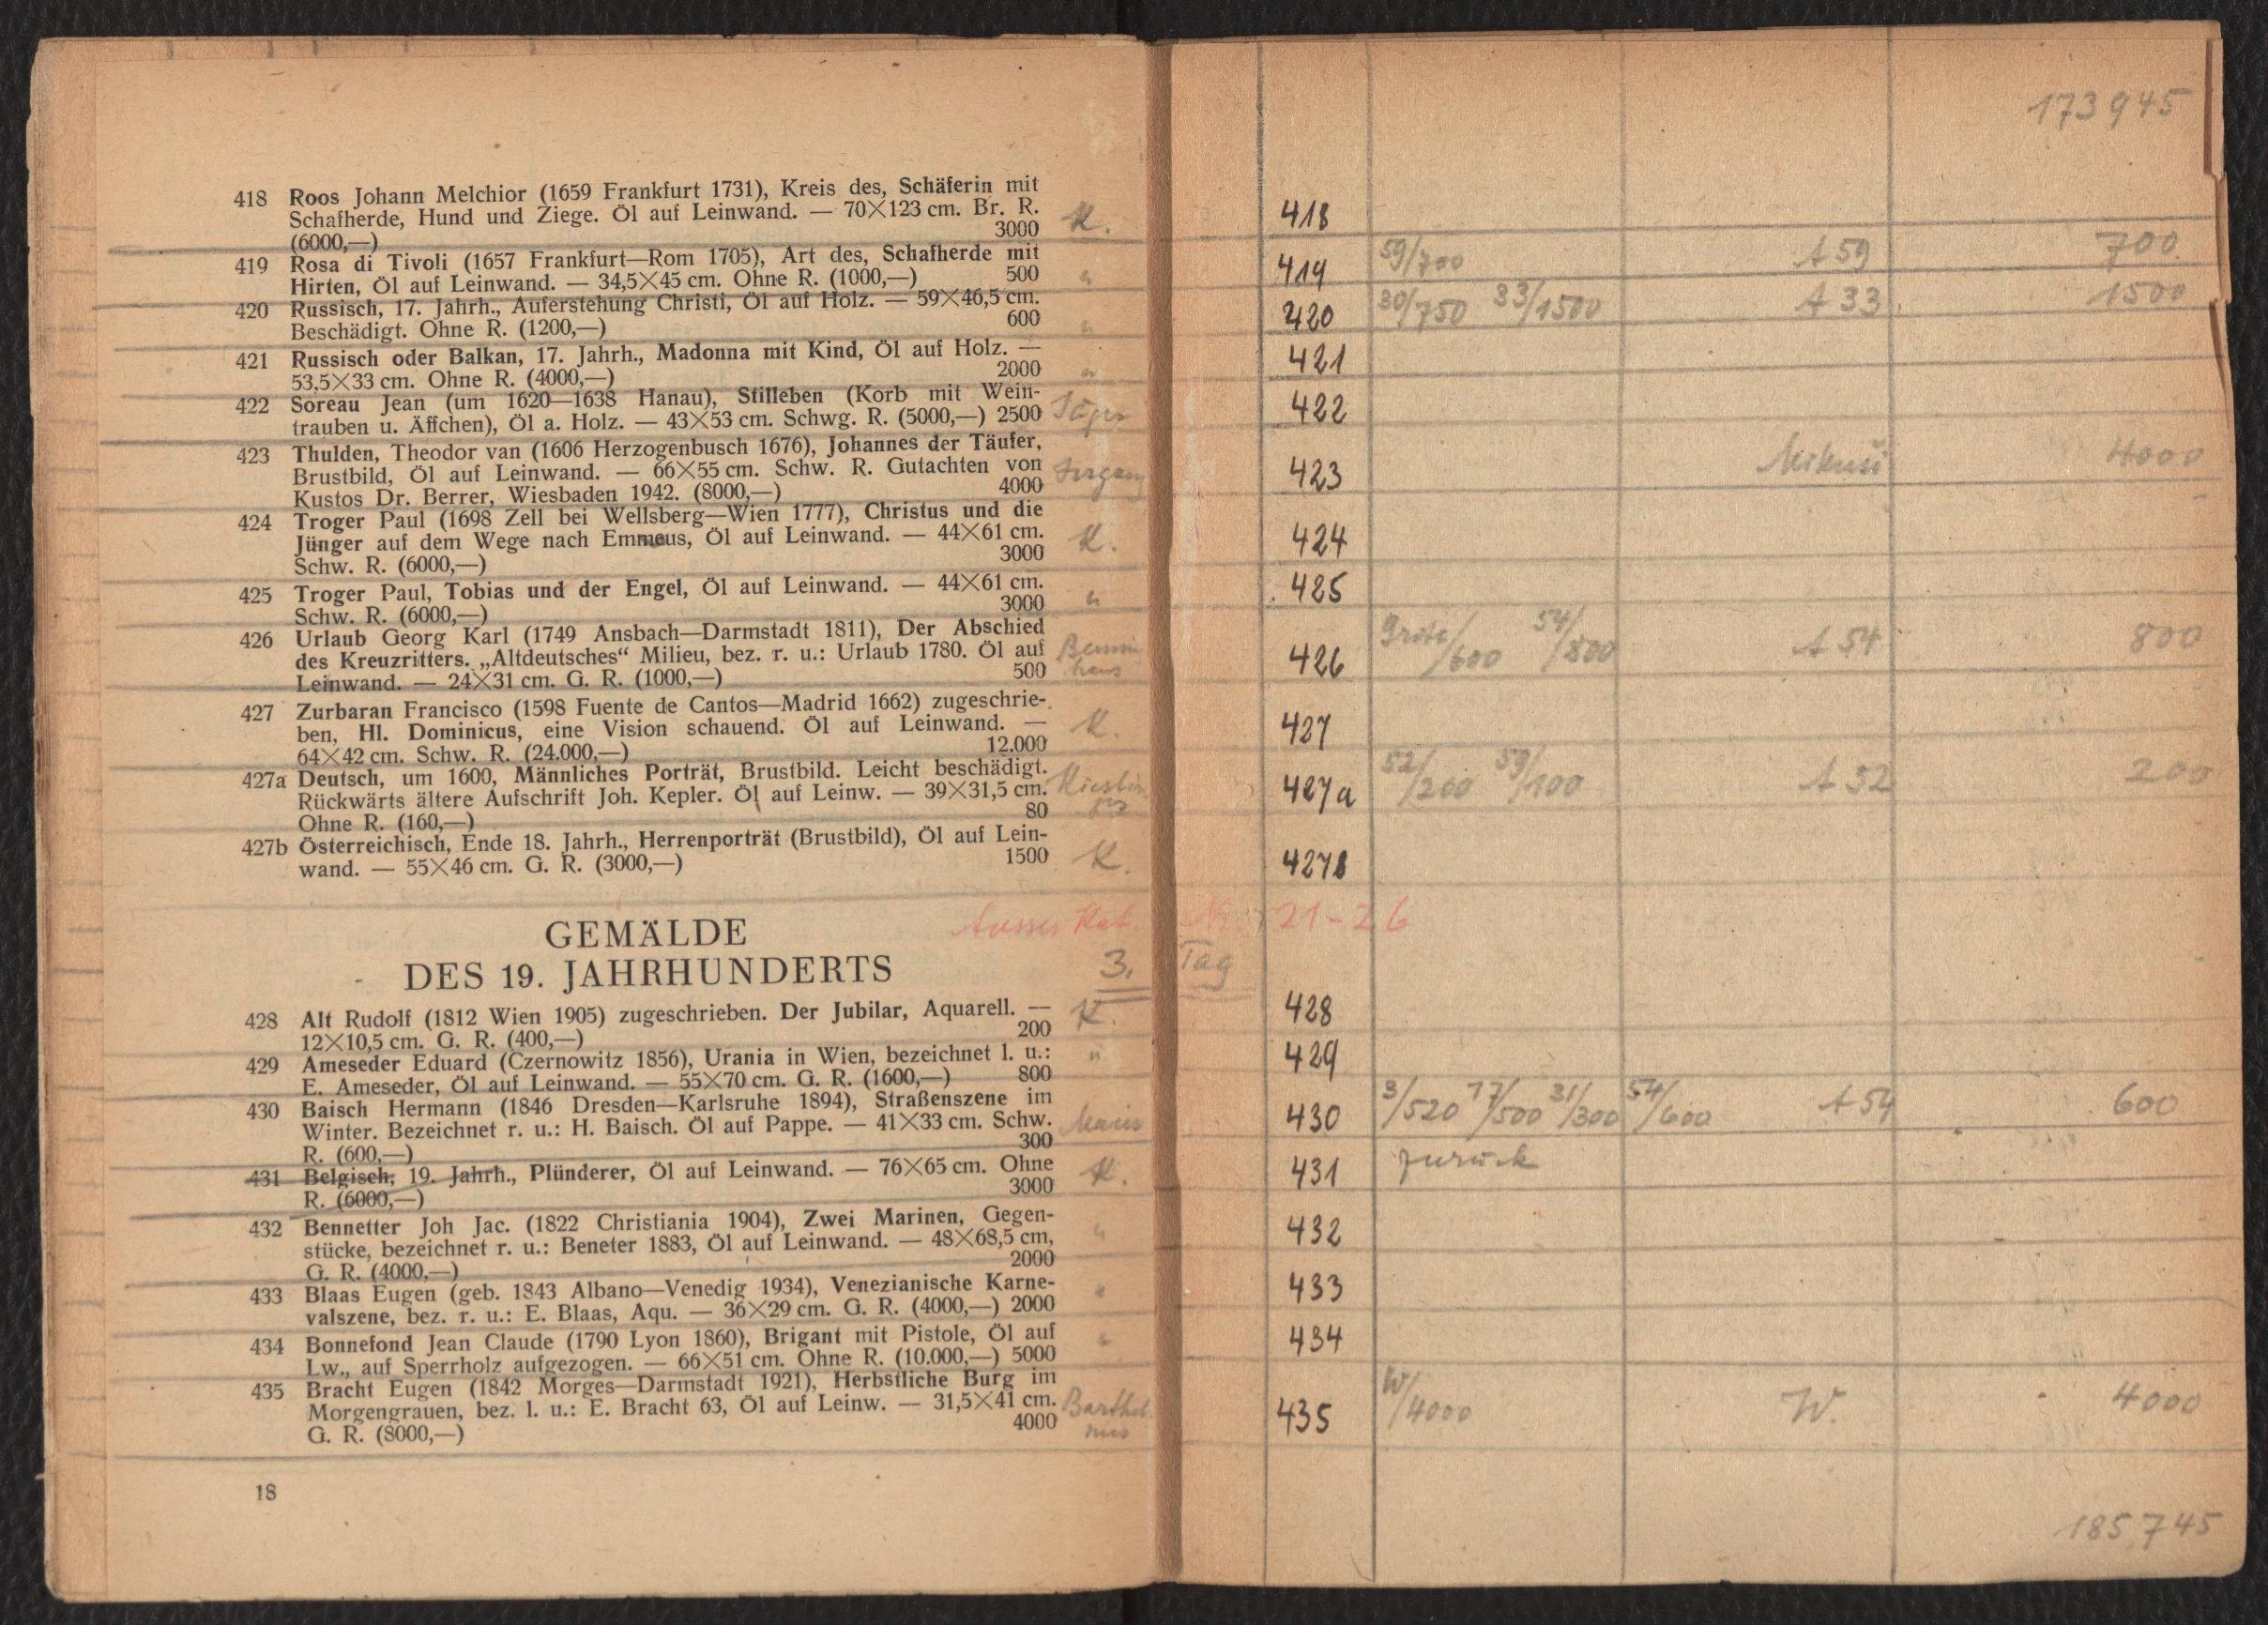 418 Roos Johann Melchior (1659 Frankfurt 1731), Kreis des, Schäferin mit
Schafherde, Hund und Ziege. Öl auf Leinwand. — 70×123 cm. Br. R.
(6000,—) 3000 K.
419 Rosa di Tivoli (1657 Frankfurt—Rom 1705), Art des, Schafherde mit
Hirten, Öl auf Leinwand. — 34,5×45 cm. Ohne R. (1000,—) 500 "
420 Russisch, 17. Jahrh., Auferstehung Christi, Öl auf Holz. — 59×46,5 cm.
Beschädigt. Ohne R. (1200,—) 600 "
421 Russisch oder Balkan, 17. Jahrh., Madonna mit Kind, Öl auf Holz. —
53,5×33 cm. Ohne R. (4000,—) 2000 "
422 Soreau Jean (um 1620—1638 Hanau), Stilleben (Korb mit Wein-
trauben u. Äffchen), Öl a. Holz. — 43×53 cm. Schwg. R. (5000,—) 2500
423 Thulden, Theodor van (1606 Herzogenbusch 1676), Johannes der Täufer,
Brustbild, Öl auf Leinwand. — 66×55 cm. Schw. R. Gutachten von
Kustos Dr. Berrer, Wiesbaden 1942. (8000,—) 4000
424 Troger Paul (1698 Zell bei Wellsberg—Wien 1777), Christus und die
Jünger auf dem Wege nach Emmaus, Öl auf Leinwand. — 44×61 cm.
Schw. R. (6000,—) 3000 K.
425 Troger Paul, Tobias und der Engel, Öl auf Leinwand. — 44×61 cm.
Schw. R. (6000,—) 3000 "
426 Urlaub Georg Karl (1749 Ansbach—Darmstadt 1811), Der Abschied
des Kreuzritters. „Altdeutsches“ Milieu, bez. r. u.: Urlaub 1780. Öl auf
Leinwand. — 24×31 cm. G. R. (1000,—) 500
427 Zurbaran Francisco (1598 Fuente de Cantos—Madrid 1662) zugeschrie-
ben, Hl. Dominicus, eine Vision schauend. Öl auf Leinwand. —
64×42 cm. Schw. R. (24.000,—) 12.000 K.
427a Deutsch, um 1600, Männliches Porträt, Brustbild. Leicht beschädigt.
Rückwärts ältere Aufschrift Joh. Kepler. Öl auf Leinw. — 39×31,5 cm.
Ohne R. (160,—) 80
427b Österreichisch, Ende 18. Jahrh., Herrenporträt (Brustbild), Öl auf Lein-
wand. — 55×46 cm. G. R. (3000,—) 1500 K.
Ausser Kat. Nr. 21-26
GEMÄLDE
DES 19. JAHRHUNDERTS
3. Tag
428 Alt Rudolf (1812 Wien 1905) zugeschrieben. Der Jubilar, Aquarell. —
12×10,5 cm. G. R. (400,—) 200 K.
429 Ameseder Eduard (Czernowitz 1856), Urania in Wien, bezeichnet l. u.:
E. Ameseder, Öl auf Leinwand. — 55×70 cm. G. R. (1600,—) 800 "
430 Baisch Hermann (1846 Dresden—Karlsruhe 1894), Straßenszene im
Winter. Bezeichnet r. u.: H. Baisch. Öl auf Pappe. — 41×33 cm. Schw.
R. (600,—) 300
431 Belgisch, 19. Jahrh., Plünderer, Öl auf Leinwand. — 76×65 cm. Ohne
R. (6000,—) 3000 K.
432 Bennetter Joh Jac. (1822 Christiania 1904), Zwei Marinen, Gegen-
stücke, bezeichnet r. u.: Beneter 1883, Öl auf Leinwand. — 48×68,5 cm,
G. R. (4000,—) 2000 "
433 Blaas Eugen (geb. 1843 Albano—Venedig 1934), Venezianische Karne-
valszene, bez. r. u.: E. Blaas, Aqu. — 36×29 cm. G. R. (4000,—) 2000 "
434 Bonnefond Jean Claude (1790 Lyon 1860), Brigant mit Pistole, Öl auf
Lw., auf Sperrholz aufgezogen. — 66×51 cm. Ohne R. (10.000,—) 5000 "
435 Bracht Eugen (1842 Morges—Darmstadt 1921), Herbstliche Burg im
Morgengrauen, bez. l. u.: E. Bracht 63, Öl auf Leinw. — 31,5×41 cm.
G. R. (8000,—) 4000
18
173945
418
419 59/700 A 59 700
420 30/750 33/1500 A 33 1500
421
422
423 4000
424
425
426 /600 54/800 A 54 800
427
427a 52/200 59/100 A 52 200
427b
428
429
430 3/520 17/500 31/300 54/600 A 54 600
431 zurück
432
433
434
435 W/4000 W. 4000
185745